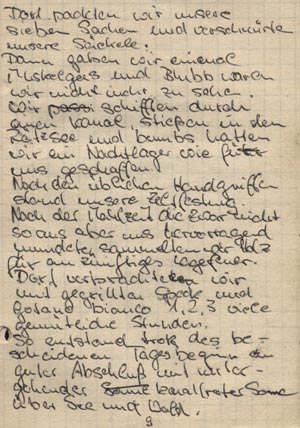 Dort packten wir unsere
sieben Sachen und verschnürten
unsere Säckele.
Dann gaben wir einmal
Muskelgas und Blubb waren
wir nicht mehr zu sehen.
Wir schifften durch
einen Kanal stießen in den
See und bumbs hatten
wir ein Nachtlager wie für
uns geschaffen.
Nach den üblichen Handgriffen
stand unsere Zeltfestung.
Nach der Mahlzeit die zwar nicht
so aus aber uns hervorragend
mundete sammelten wir Holz
für ein zünftiges Lagerfeuer.
Dort verbrachten wir
mit gegrillten Speck und
Gotano bianco 1,2,3 viele
gemütliche Stunden.
So entstand trotz des be-
scheidenen Tagesbeginn ein
guter Abschluß mit unter-
gehender karallroter Sonne
über See und Wald.
9